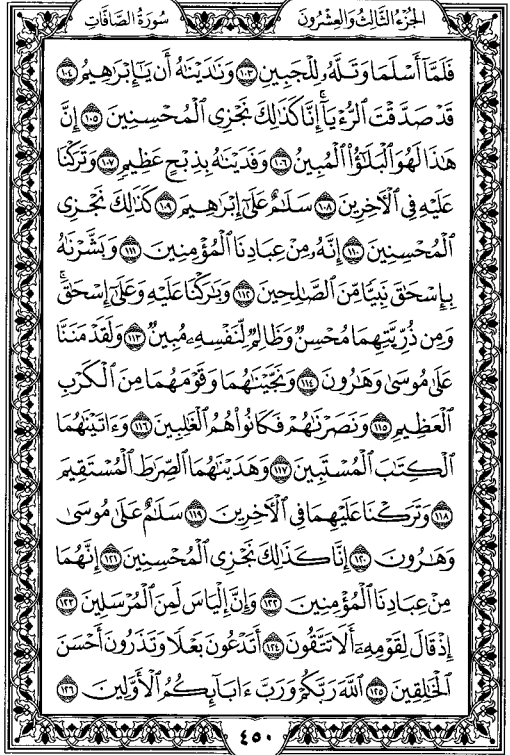 سُورَةُ الصَّافَّاتِ
الجُزْءُ الثَّالِثُ وَالعِشْرُونَ
فَلَمَّآ أَسْلَمَا وَتَلَّهُۥ لِلْجَبِينِ ١٠٣ وَنَٰدَيْنَٰهُ أَن يَٰٓإِبْرَٰهِيمُ ١٠٤
قَدْ صَدَّقْتَ ٱلرُّءْيَآۚ إِنَّا كَذَٰلِكَ نَجْزِى ٱلْمُحْسِنِينَ ١٠٥ إِنَّ
هَٰذَا لَهُوَ ٱلْبَلَٰٓؤُا۟ ٱلْمُبِينُ ١٠٦ وَفَدَيْنَٰهُ بِذِبْحٍ عَظِيمٍ ١٠٧ وَتَرَكْنَا
عَلَيْهِ فِى ٱلْءَاخِرِينَ ١٠٨ سَلَٰمٌ عَلَىٰٓ إِبْرَٰهِيمَ ١٠٩ كَذَٰلِكَ نَجْزِى
ٱلْمُحْسِنِينَ ١١٠ إِنَّهُۥ مِنْ عِبَادِنَا ٱلْمُؤْمِنِينَ ١١١ وَبَشَّرْنَٰهُ
بِإِسْحَٰقَ نَبِيًّا مِّنَ ٱلصَّٰلِحِينَ ١١٢ وَبَٰرَكْنَا عَلَيْهِ وَعَلَىٰٓ إِسْحَٰقَۚ
وَمِن ذُرِّيَّتِهِمَا مُحْسِنٌ وَظَالِمٌ لِّنَفْسِهِۦ مُبِينٌ ١١٣ وَلَقَدْ مَنَنَّا
عَلَىٰ مُوسَىٰ وَهَٰرُونَ ١١٤ وَنَجَّيْنَٰهُمَا وَقَوْمَهُمَا مِنَ ٱلْكَرْبِ
ٱلْعَظِيمِ ١١٥ وَنَصَرْنَٰهُمْ فَكَانُوا۟ هُمُ ٱلْغَٰلِبِينَ ١١٦ وَءَاتَيْنَٰهُمَا
ٱلْكِتَٰبَ ٱلْمُسْتَبِينَ ١١٧ وَهَدَيْنَٰهُمَا ٱلصِّرَٰطَ ٱلْمُسْتَقِيمَ
١١٨ وَتَرَكْنَا عَلَيْهِمَا فِى ٱلْءَاخِرِينَ ١١٩ سَلَٰمٌ عَلَىٰ مُوسَىٰ
وَهَٰرُونَ ١٢٠ إِنَّا كَذَٰلِكَ نَجْزِى ٱلْمُحْسِنِينَ ١٢١ إِنَّهُمَا
مِنْ عِبَادِنَا ٱلْمُؤْمِنِينَ ١٢٢ وَإِنَّ إِلْيَاسَ لَمِنَ ٱلْمُرْسَلِينَ ١٢٣
إِذْ قَالَ لِقَوْمِهِۦٓ أَلَا تَتَّقُونَ ١٢٤ أَتَدْعُونَ بَعْلًا وَتَذَرُونَ أَحْسَنَ
ٱلْخَٰلِقِينَ ١٢٥ ٱللَّهَ رَبَّكُمْ وَرَبَّ ءَابَآئِكُمُ ٱلْأَوَّلِينَ ١٢٦
٤٥٠